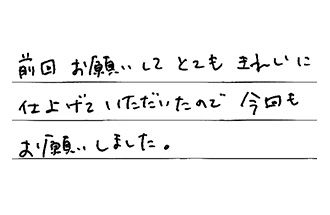 前回 お願いして とても きれいに
仕上げて いただいたので 今回も
お願いしました。